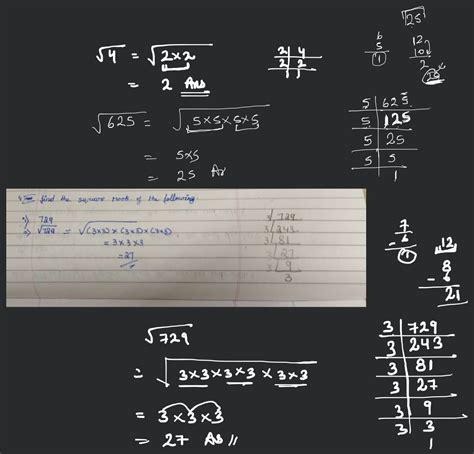 √4 = √2×2
= 2 Ans
2 | 4
2 | 2
√25
12
2
√625 = √5×5×5×5
= 5×5
= 25 As
5 | 625
5 | 125
5 | 25
5 | 5
1
find the square root of the following.
729
√729 = √(3×3)×(3×3)×(3×3)
= 3×3×3
= 27
3 | 729
3 | 243
3 | 81
3 | 27
3 | 9
3
7
- 6
1
12
8
- 6
21
√729
= √3×3×3×3×3×3
= 3×3×3
= 27 As //
3 | 729
3 | 243
3 | 81
3 | 27
3 | 9
3 | 3
1